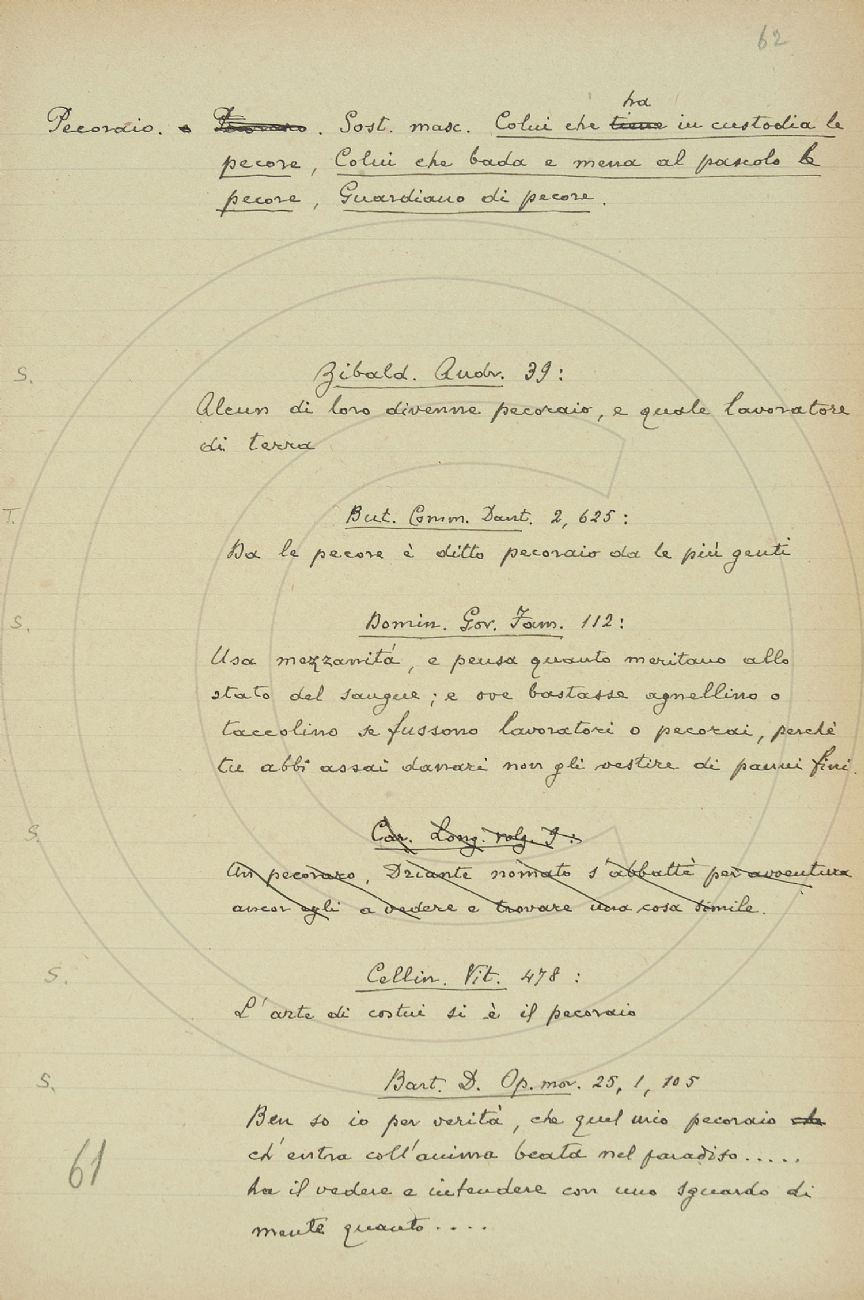 62
Pecoraio. e Pecoraro. Sost. masc. Colui che tiene ha in custodia le
pecore, Colui che bada e mena al pascolo le
pecore, Guardiano di pecore.
S. Zibald. Andr. 39:
Alcun di loro divenne pecoraio, e quale lavoratore
di terra
T. But. Comm. Dant. 2, 625:
Da le pecore è ditto pecoraio da le più genti
S. Domin. Gov. Fam. 112:
Usa mezzanità, e pensa quanto meritano allo
stato del sangue; e ove bastasse agnellino o
taccolino se fussono lavoratori o pecorai, perchè
tu abbi assai danari non gli vestire di panni fini.
S. Car. Long. volg. 9:
Un pecoraro, Driante nomato s'abbattè per avventura
ancor egli a vedere e trovare una cosa simile.
S. Cellin. Vit. 478:
L'arte di costui si è il pecoraio
S. Bart. D. Op. mor. 25, 1, 105
Ben so io per verità, che quel mio pecoraio che
ch'entra coll'anima beata nel paradiso.....
61
ha il vedere e intendere con uno sguardo di
mente quanto....